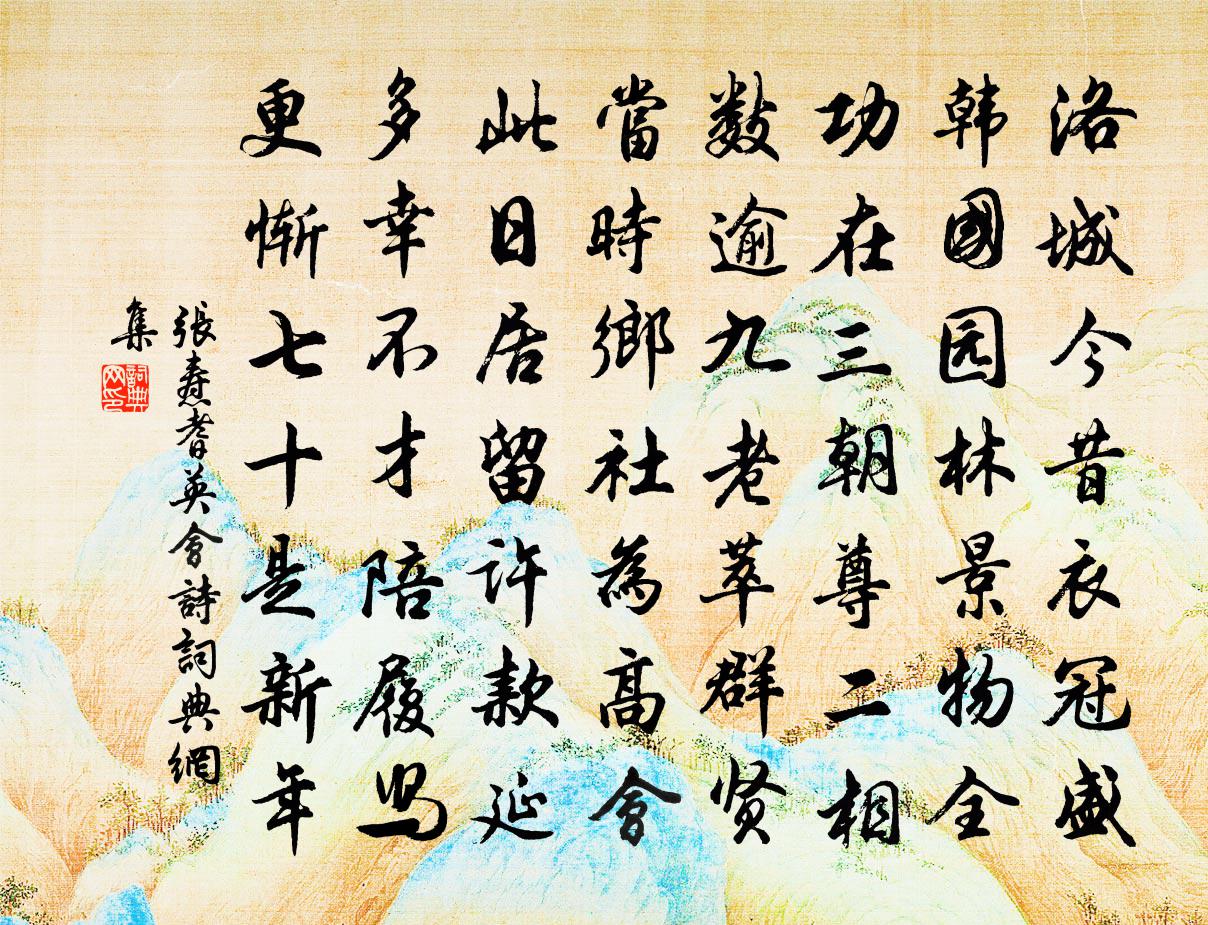 洛城今昔衣冠盛
韩國园林景物全
功在三朝尊二相
數逾九老萃群贤
當時鄉社為高會
此日居留許款延
多幸不才陪履舄
更惭七十是新年
張焘耆英會詩詞典網
集
詞典网印